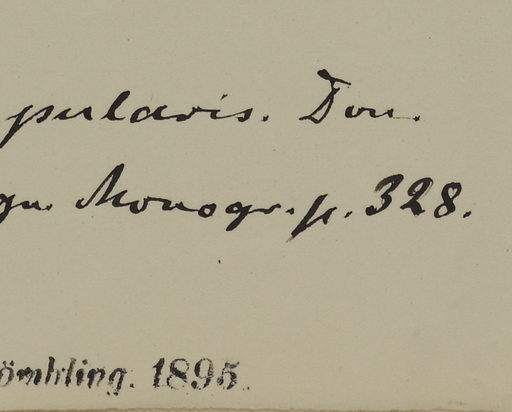 pularis. Don.
gn. Monogr. p. 328.
ömbling. 1895.